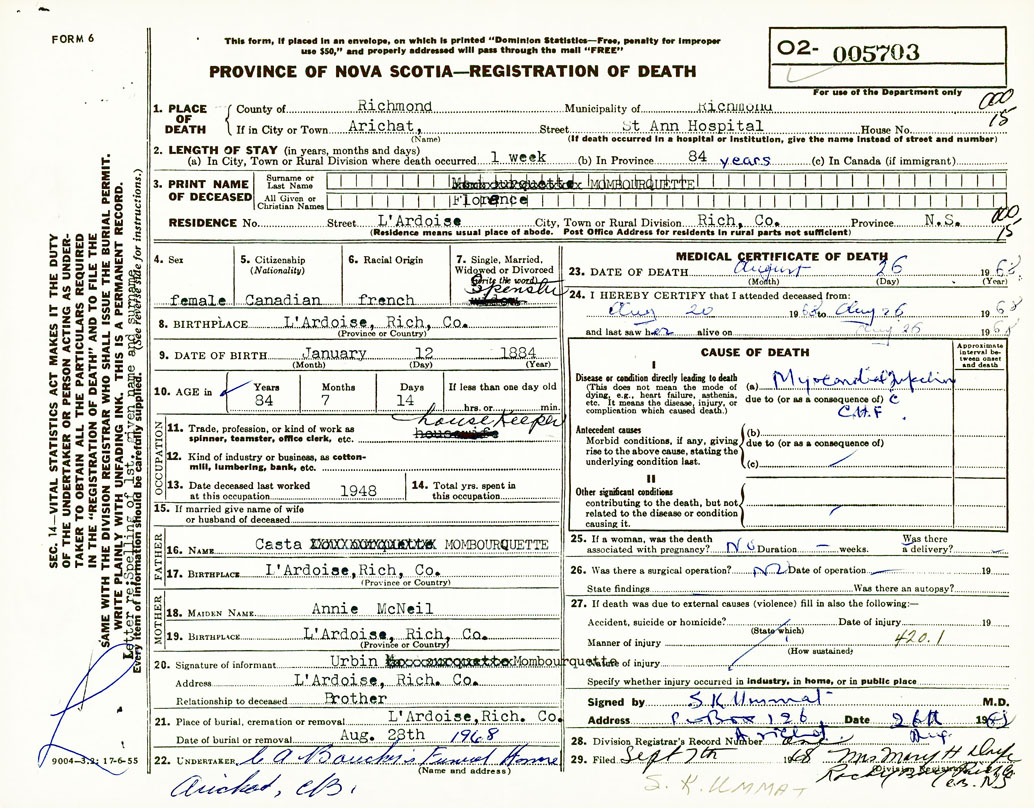 FORM 6
This form, if placed in an envelope, on which is printed "Dominion Statistics—Free, penalty for improper
use $50," and properly addressed will pass through the mail "FREE"
PROVINCE OF NOVA SCOTIA—REGISTRATION OF DEATH
02- 005703
For use of the Department only
000
15
1. PLACE OF DEATH
County of Richmond Municipality of Richmond
If in City or Town Arichat, Street St Ann Hospital House No.
(Name) (If death occurred in a hospital or institution, give the name instead of street and number)
2. LENGTH OF STAY (in years, months and days)
(a) In City, Town or Rural Division where death occurred 1 week (b) In Province 84 years (c) In Canada (if immigrant)
3. PRINT NAME OF DECEASED
Surname or Last Name MOMBOURQUETTE
All Given or Christian Names Florence
RESIDENCE No. Street L'Ardoise City, Town or Rural Division Rich, Co. Province N.S.
(Residence means usual place of abode. Post Office Address for residents in rural parts not sufficient)
000
15
4. Sex female
5. Citizenship (Nationality) Canadian
6. Racial Origin french
7. Single, Married, Widowed or Divorced (Write the word) Spenster
8. BIRTHPLACE L'Ardoise, Rich, Co.
(Province or Country)
9. DATE OF BIRTH January 12 1884
(Month) (Day) (Year)
10. AGE in Years 84 Months 7 Days 14 If less than one day old hrs. or min.
OCCUPATION
11. Trade, profession, or kind of work as spinner, teamster, office clerk, etc. housekeeper
housewife
12. Kind of industry or business, as cotton-mill, lumbering, bank, etc.
13. Date deceased last worked at this occupation 1948
14. Total yrs. spent in this occupation
15. If married give name of wife or husband of deceased
FATHER
16. NAME Casta MOMBOURQUETTE
17. BIRTHPLACE L'Ardoise, Rich, Co.
(Province or Country)
MOTHER
18. MAIDEN NAME Annie McNeil
19. BIRTHPLACE L'Ardoise, Rich, Co.
(Province or Country)
20. Signature of informant Urbin Mombourquette
Address L'Ardoise, Rich. Co.
Relationship to deceased Brother
21. Place of burial, cremation or removal L'Ardoise, Rich. Co.
Date of burial or removal Aug. 28th 1968
22. UNDERTAKER C A Boucher's Funeral Home
(Name and address)
Arichat, CB.
MEDICAL CERTIFICATE OF DEATH
23. DATE OF DEATH August 26 1968
(Month) (Day) (Year)
24. I HEREBY CERTIFY that I attended deceased from:
Aug 20 1968 to Aug 26 1968
and last saw her alive on Aug 26 1968
CAUSE OF DEATH
Approximate interval between onset and death
I
Disease or condition directly leading to death
(This does not mean the mode of dying, e.g., heart failure, asthenia, etc. It means the disease, injury, or complication which caused death.)
(a) Myocardial Infarction
due to (or as a consequence of) c
C.H.F.
Antecedent causes
Morbid conditions, if any, giving rise to the above cause, stating the underlying condition last.
(b)
due to (or as a consequence of)
(c)
II
Other significant conditions
contributing to the death, but not related to the disease or condition causing it.
25. If a woman, was the death associated with pregnancy? No Duration – weeks. Was there a delivery?
26. Was there a surgical operation? No Date of operation 19
State findings Was there an autopsy?
27. If death was due to external causes (violence) fill in also the following:—
Accident, suicide or homicide? Date of injury 19
(State which)
Manner of injury 420.1
(How sustained)
Nature of injury
Specify whether injury occurred in industry, in home, or in public place
Signed by S K Ummat M.D.
Address P. Box 126, Date 26th 1968
Arichat Aug.
28. Division Registrar's Record Number
29. Filed Sept 7th 1968 Mrs Mary H
(Division Registrar)
(C.B. NS)
S. K. UMMAT
SEC. 14—VITAL STATISTICS ACT MAKES IT THE DUTY
OF THE UNDERTAKER OR PERSON ACTING AS UNDER-
TAKER TO OBTAIN ALL THE PARTICULARS REQUIRED
IN THE "REGISTRATION OF DEATH" AND TO FILE THE
SAME WITH THE DIVISION REGISTRAR WHO SHALL ISSUE THE BURIAL PERMIT.
WRITE PLAINLY WITH UNFADING INK. THIS IS A PERMANENT RECORD.
Letter re:Spelling of 1st. given name and surname
Every item of information should be carefully supplied. (See reverse side for instructions.)
9004—3.2; 17-6-55